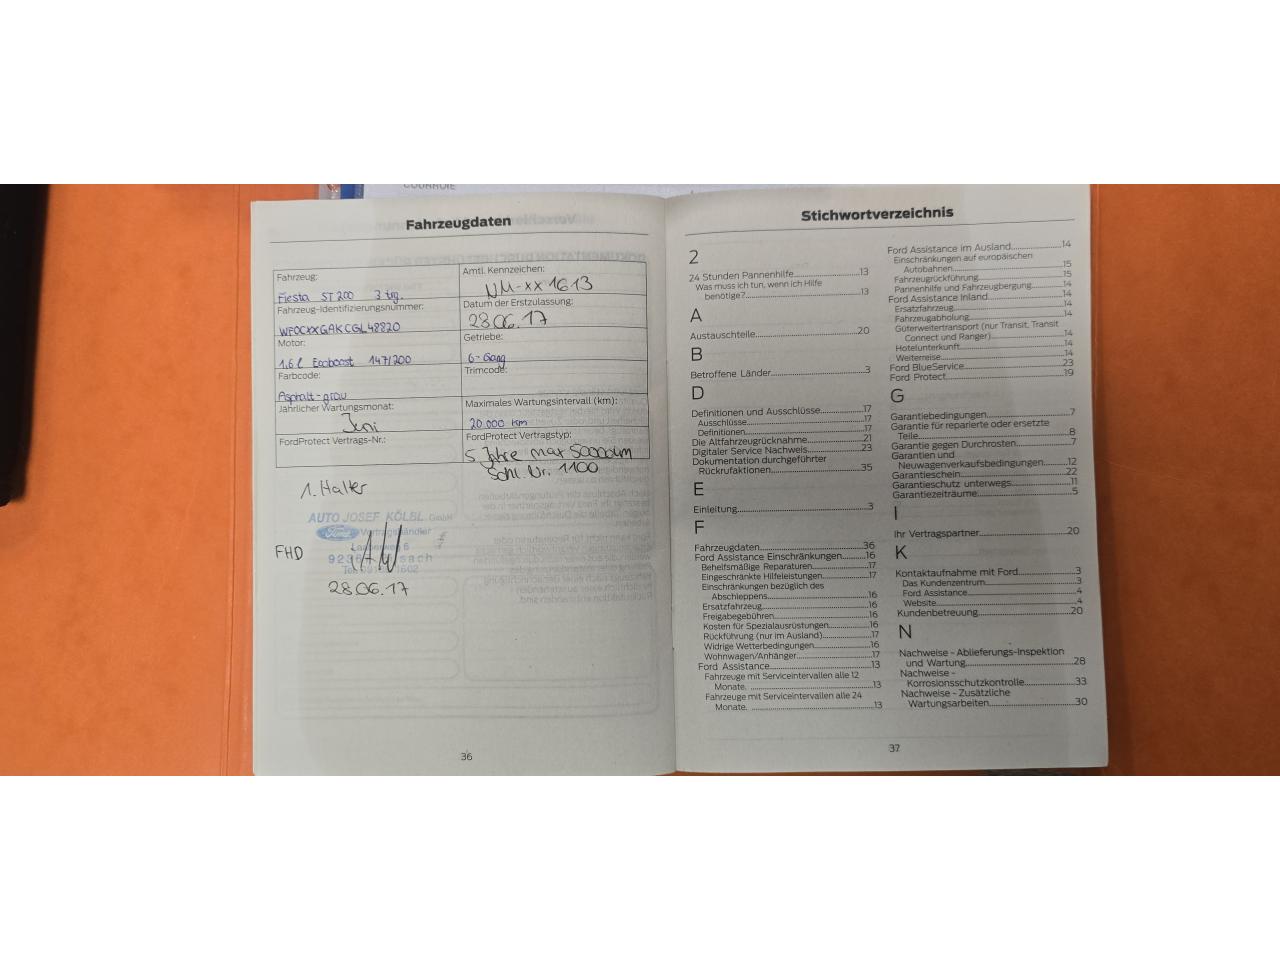 COURROIE
Fahrzeugdaten
Fahrzeug:
Fiesta ST200 3 trg.
Amtl. Kennzeichen:
NM-XX 1613
Fahrzeug-Identifizierungsnummer:
WF0CXXGAKCGL48820
Datum der Erstzulassung:
28.06.17
Motor:
1,6 l Ecoboost 147/200
Getriebe:
6-Gang
Farbcode:
Asphalt-grau
Trimcode:
Jährlicher Wartungsmonat:
Juni
Maximales Wartungsintervall (km):
20.000 km
FordProtect Vertrags-Nr.:
FordProtect Vertragstyp:
5 Jahre max 50000km
Schl. Nr. 1100
1. Halter
AUTO JOSEF KÖLBL GmbH
Ford Vertragshändler
FHD
28.06.17
36
Stichwortverzeichnis
2
24 Stunden Pannenhilfe 13
Was muss ich tun, wenn ich Hilfe
benötige? 13
A
Austauschteile 20
B
Betroffene Länder 3
D
Definitionen und Ausschlüsse 17
Ausschlüsse 17
Definitionen 17
Die Altfahrzeugrücknahme 21
Digitaler Service Nachweis 23
Dokumentation durchgeführter
Rückrufaktionen 35
E
Einleitung 3
F
Fahrzeugdaten 36
Ford Assistance Einschränkungen 16
Behelfsmäßige Reparaturen 17
Eingeschränkte Hilfeleistungen 17
Einschränkungen bezüglich des
Abschleppens 16
Ersatzfahrzeug 16
Freigabegebühren 16
Kosten für Spezialausrüstungen 16
Rückführung (nur im Ausland) 17
Widrige Wetterbedingungen 16
Wohnwagen/Anhänger 17
Ford Assistance 13
Fahrzeuge mit Serviceintervallen alle 12
Monate. 13
Fahrzeuge mit Serviceintervallen alle 24
Monate. 13
Ford Assistance im Ausland 14
Einschränkungen auf europäischen
Autobahnen 15
Fahrzeugrückführung 15
Pannenhilfe und Fahrzeugbergung 14
Ford Assistance Inland 14
Ersatzfahrzeug 14
Fahrzeugabholung 14
Güterweitertransport (nur Transit, Transit
Connect und Ranger) 14
Hotelunterkunft 14
Weiterreise 14
Ford BlueService 23
Ford Protect 19
G
Garantiebedingungen 7
Garantie für reparierte oder ersetzte
Teile 8
Garantie gegen Durchrosten 7
Garantien und
Neuwagenverkaufsbedingungen 12
Garantieschein 22
Garantieschutz unterwegs 11
Garantiezeiträume 5
I
Ihr Vertragspartner 20
K
Kontaktaufnahme mit Ford 3
Das Kundenzentrum 3
Ford Assistance 4
Website 4
Kundenbetreuung 20
N
Nachweise - Ablieferungs-Inspektion
und Wartung 28
Nachweise -
Korrosionsschutzkontrolle 33
Nachweise - Zusätzliche
Wartungsarbeiten 30
37